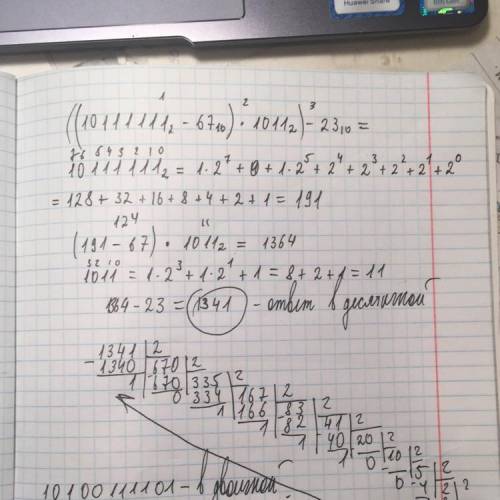 Huawei Share
1 2 3
((10111111₂ - 67₁₀) · 1011₂) - 23₁₀ =
7 6 5 4 3 2 1 0
10111111₂ = 1·2⁷ + 0 + 1·2⁵ + 2⁴ + 2³ + 2² + 2¹ + 2⁰
= 128 + 32 + 16 + 8 + 4 + 2 + 1 = 191
124 11
(191 - 67) · 1011₂ = 1364
3 2 1 0
1011 = 1·2³ + 1·2¹ + 1 = 8 + 2 + 1 = 11
1364 - 23 = 1341 - ответ в десятичной
1341 2
- 1340 670 2
1 670 335 2
0 334 167 2
1 166 83 2
1 82 41 2
1 40 20 2
1 0 10 2
0 5 2
4 2 2
10100111101 - в двоичной